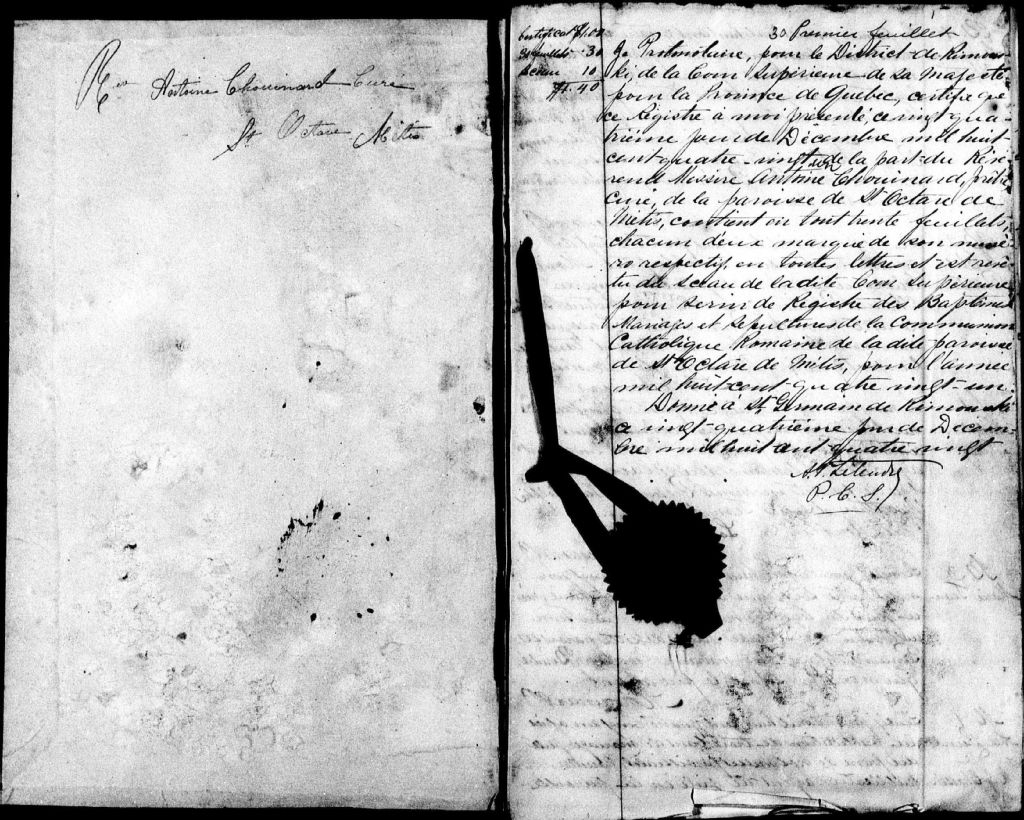 Rev Antoine Chouinard Cure
St. Octave Métis
30 Premier feuillet
Certificat $1.00
30 feuillets .30
Sceau 10
$1.40
Protonotaire, pour le District de Rimous-
ki de la Cour Supérieure de Sa Majesté
pour la Province de Quebec, certifie que
ce Régistre à moi présenté, ce vingt-qua-
trième jour de Décembre mil huit-
cent-quatre-vingt un de la part du Révé-
rend Messire Antoine Chouinard, prêtre
curé, de la paroisse de St Octave de
Métis, contient en tout trente feuillets,
chacun d'eux marqué de son numé-
ro respectif, en toutes lettres et est revê-
tu du sceau de la dite Cour Supérieure
pour servir de Régistre des Baptêmes
Mariages et Sépultures de la Communion
Catholique Romaine de la dite paroisse
de St Octave de Métis, pour l'année
mil huit-cent-quatre vingt-un.
Donné à St Germain de Rimouski
ce vingt-quatrième jour de Décem-
bre mil huit cent-quatre vingt
P. C. S.